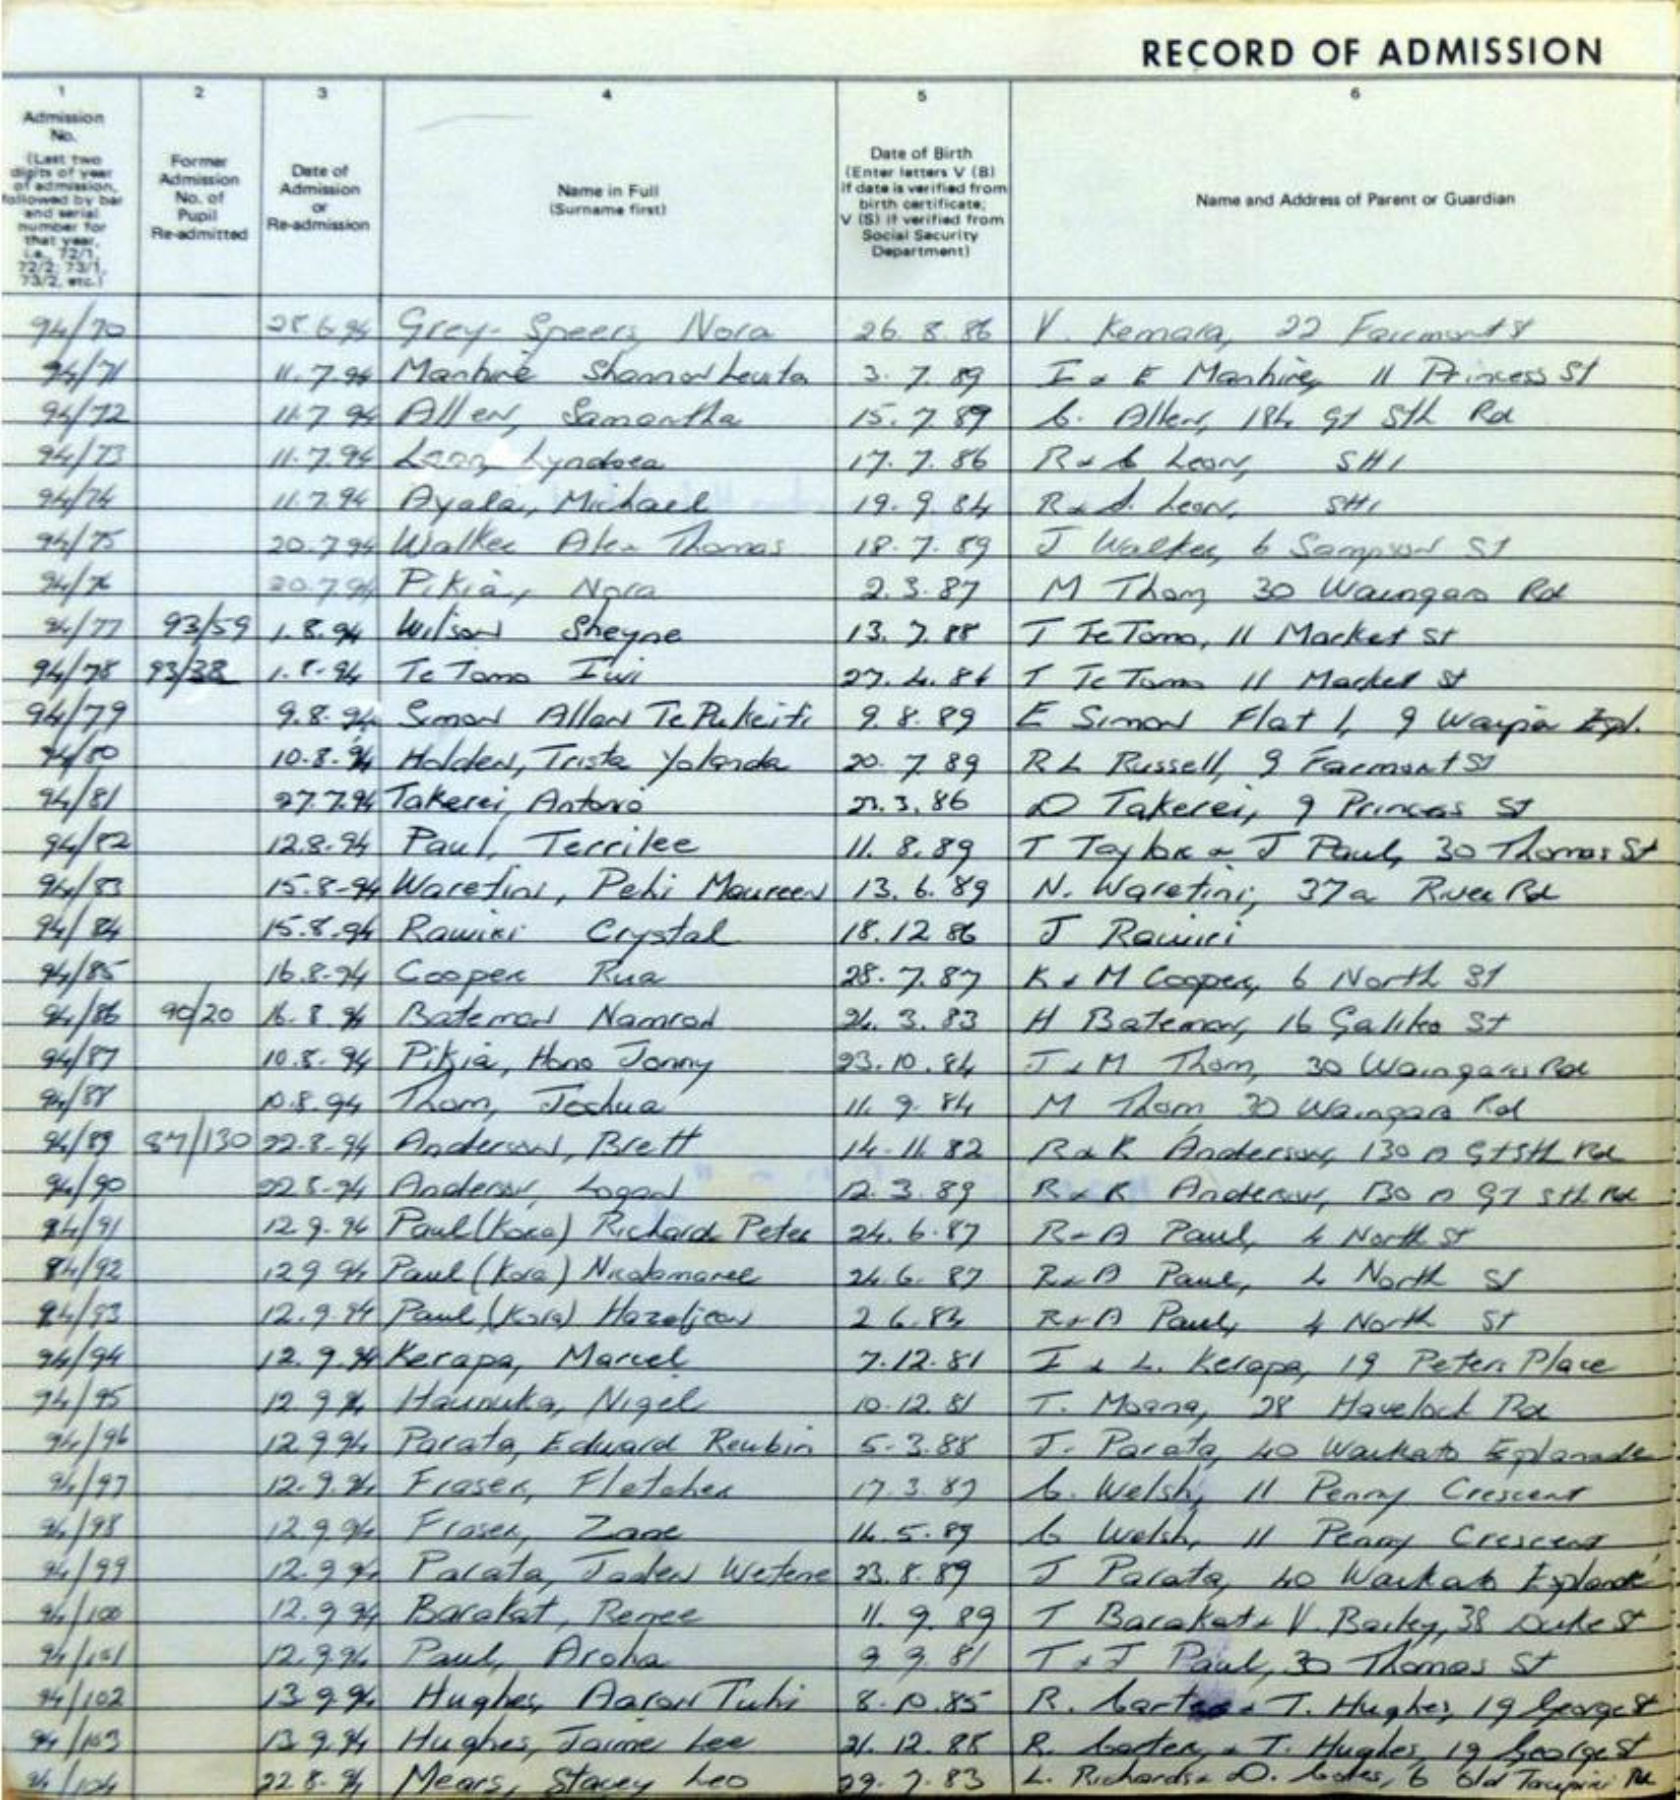 RECORD OF ADMISSION
1 2 3 4 5 6
Admission No. (Last two digits of year of admission, followed by bar and serial number for that year, i.e., 72/1, 72/2, 73/1, 73/2, etc.)
Former Admission No. of Pupil Re-admitted
Date of Admission or Re-admission
Name in Full (Surname first)
Date of Birth (Enter letters V (B) if date is verified from birth certificate; V (S) if verified from Social Security Department)
Name and Address of Parent or Guardian
94/70 28.6.94 Grey-Speers, Nora 26.8.86 V. Kemara, 22 Fairmont St
94/71 11.7.94 Manhire Shannon 3.7.89 I & E Manhire, 11 Princess St
94/72 11.7.94 Allen, Samantha 15.7.89 C. Allen, 184 Gt Sth Rd
94/73 11.7.94 Leon, Lyndsea 17.7.86 R & S Leon, SH1
94/74 11.7.94 Ayala, Michael 19.9.84 R & S. Leon, SH1
94/75 20.7.94 Walker Alex Thomas 18.7.89 J Walker, 6 Sampson St
94/76 20.7.94 Pikia, Nora 2.3.87 M Thom, 30 Waingaro Rd
94/77 93/59 1.8.94 Wilson Sheyne 13.7.88 T TeTomo, 11 Market St
94/78 93/38 1.8.94 Te Tomo Iwi 27.4.86 T Te Tomo 11 Market St
94/79 9.8.94 Simon Allan Te Pukeiti 9.8.89 E Simon Flat 1, 9 Waipa Espl.
94/80 10.8.94 Holden, Trista Yolanda 20.7.89 R L Russell, 9 Fairmont St
94/81 27.7.94 Takerei, Antonio 23.3.86 D Takerei, 9 Princess St
94/82 12.8.94 Paul, Terrilee 11.8.89 T Taylor & J Paul, 30 Thomas St
94/83 15.8-94 Waretini, Pehi Maureen 13.6.89 N. Waretini, 37a River Rd
94/84 15.8.94 Rawiri Crystal 18.12.86 J Rawiri
94/85 16.8-94 Cooper Rua 28.7.87 K & M Cooper, 6 North St
94/86 90/20 16.8.94 Bateman Namrod 24.3.83 H Bateman, 16 Galileo St
94/87 10.8.94 Pikia, Hono Jonny 23.10.84 J & M Thom, 30 Waingaro Rd
94/88 10.8.94 Thom, Joshua 11.9.84 M Thom 30 Waingaro Rd
94/89 87/130 22.8-94 Anderson, Brett 14-11.82 R & R Anderson, 130 A Gt Sth Rd
94/90 22.8-94 Anderson, Logan 12.3.89 R & R Anderson, 130 A Gt Sth Rd
94/91 12.9.94 Paul (Kora) Richard Peter 24.6.87 R & A Paul, 4 North St
94/92 12 9 94 Paul (Kora) 24.6.87 R & A Paul, 4 North St
94/93 12.9.94 Paul (Kora) Hazeljean 2 6.84 R & A Paul, 4 North St
94/94 12.9.94 Kerapa, Marcel 7.12.81 I & L. Kerapa, 19 Peters Place
94/95 12.9.94 Haunuka, Nigel 10.12.81 T. Moana, 28 Havelock Rd
94/96 12 9 94 Parata, Edward Reubin 5-3.88 J. Parata, 40 Waikato Esplanade
94/97 12.9.94 Fraser, Fletcher 17.3.87 C. Welsh, 11 Penny Crescent
94/98 12.9.94 Fraser, Zane 14.5.89 C Welsh, 11 Penny Crescent
94/99 12.9 94 Parata, Jaden Wetene 23.8.89 J Parata, 40 Waikato Esplande
94/100 12.9 94 Barakat, Renee 11.9.89 T Barakat & V. Bailey, 38 Duke St
94/101 12.9 94 Paul, Aroha 9 9.81 T & J Paul, 30 Thomas St
94/102 13 9 94 Hughes, Aaron Tuhi 8.10.85 R. Carter & T. Hughes, 19 George St
94/103 13 9.94 Hughes, Jaime Lee 21.12.88 R. Carter, & T. Hughes, 19 George St
94/104 22 8.94 Mears, Stacey Leo 29.7.83 L. Richards & D. Coles, 6 Old Taupiri Rd